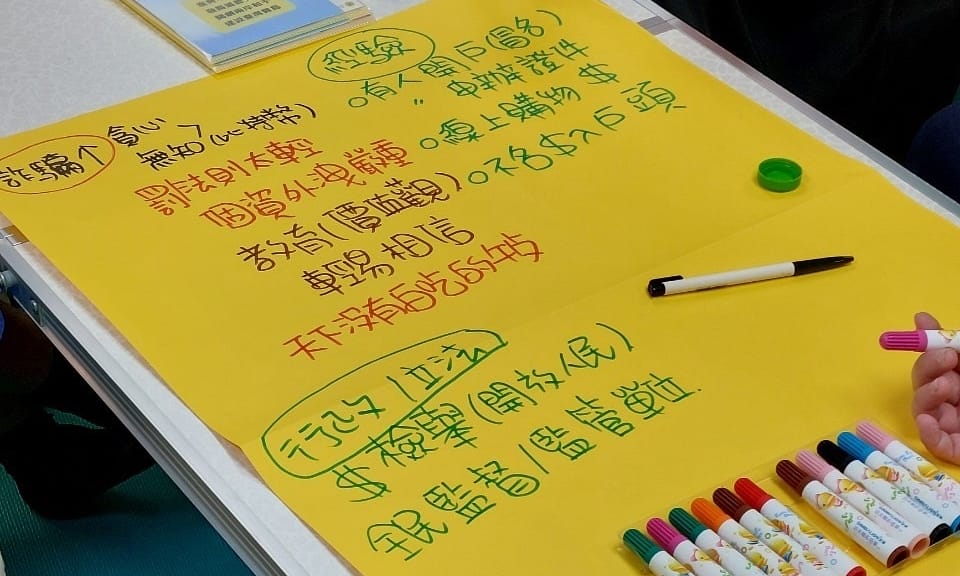 詐騙个
貪心 >
無知 (比特幣)
罰法則太輕
個資外洩嚴重
教育(價值觀)
輕易相信
天下沒有白吃的午歺
經驗
○有人開戶(冒名)
〃 申辦證件
○線上購物 $
○不名$入戶頭
行政/立法
$檢舉(開放人民)
全民監督/監管單位.